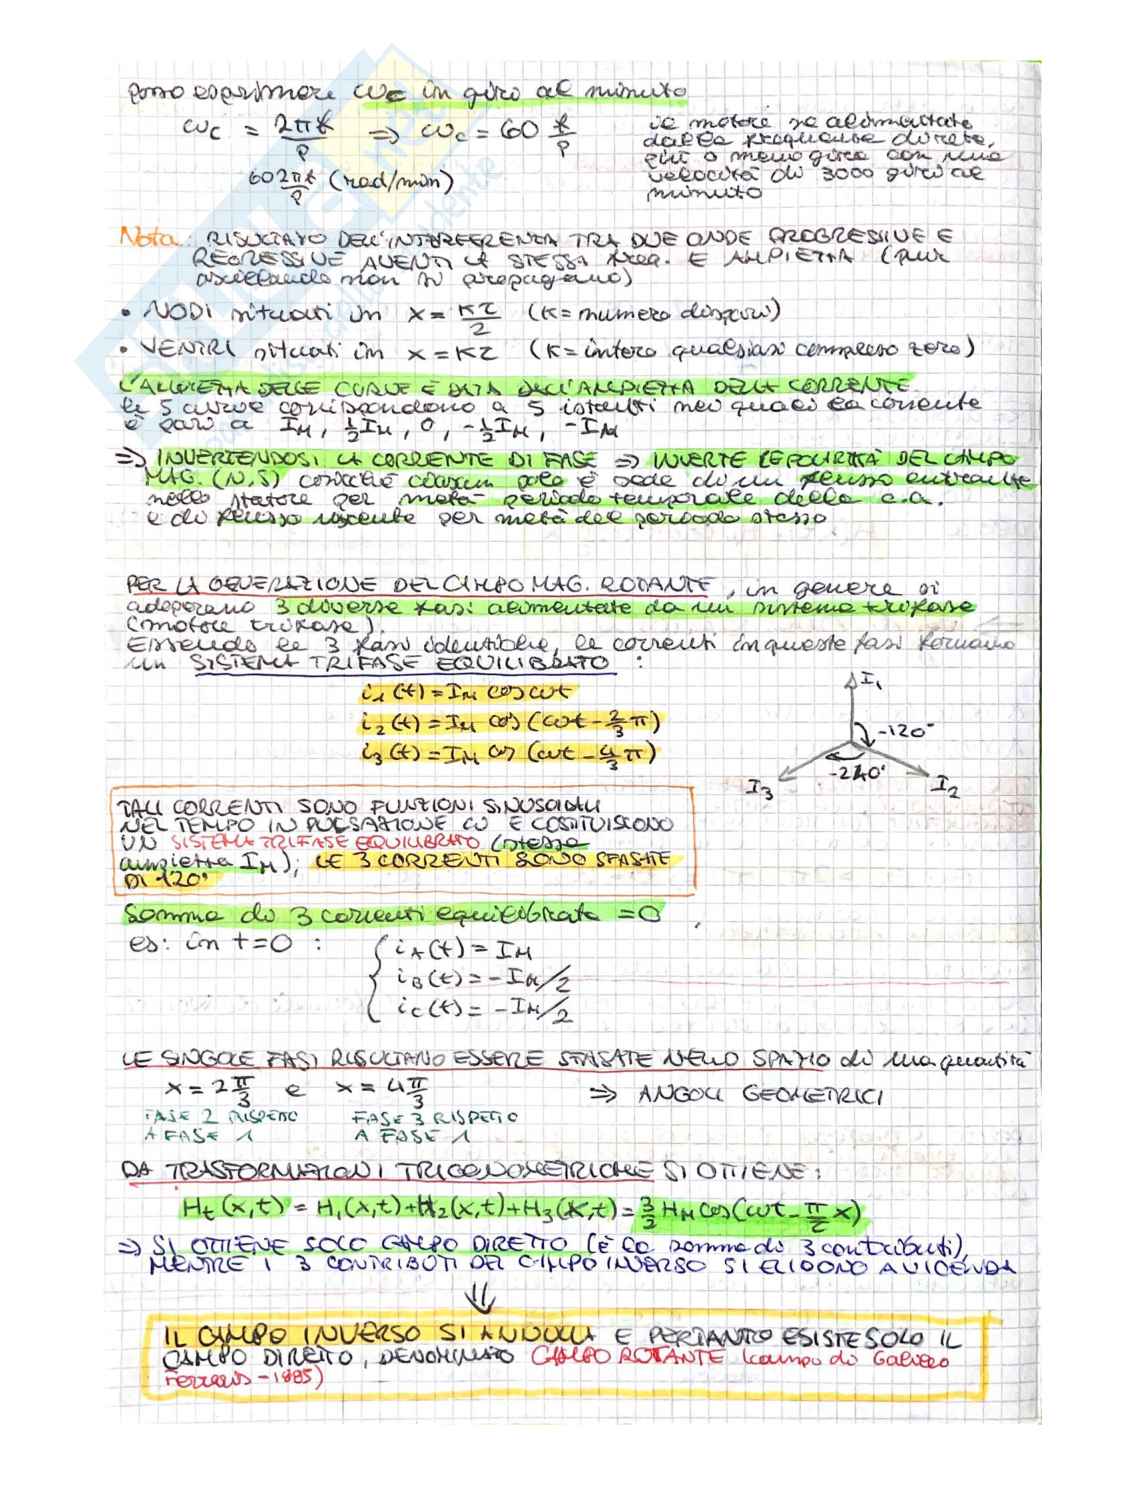 posso esprimere ωc in giro al minuto
ωc = 2πf/p ⇒ ωc = 60 f/p
60 2πf/p (rad/min)
il motore se alimentato
dalla frequenza di rete,
più o meno gira con una
velocità di 3000 giri al
minuto
Nota: RISULTATO DELL'INTERFERENZA TRA DUE ONDE PROGRESSIVE E
REGRESSIVE AVENTI LA STESSA freq. E AMPIEZZA (pur
oscillando non si propagano)
• NODI situati in x = Kτ/2 (K = numero dispari)
• VENTRI situati in x = Kτ (K = intero qualsiasi compreso zero)
L'AMPIEZZA DELLE CURVE È DATA DALL'AMPIEZZA DELLA CORRENTE
le 5 curve corrispondono a 5 istanti nei quali la corrente
è pari a IM, ½IM, 0, -½IM, -IM
⇒ INVERTENDOSI LA CORRENTE DI FASE ⇒ INVERTE LE POLARITÀ DEL CAMPO
MAG. (N,S) cosicché ciascun polo è sede di un flusso entrante
nello statore per metà periodo temporale della c.a.
e di flusso uscente per metà del periodo stesso
PER LA GENERAZIONE DEL CAMPO MAG. ROTANTE, in genere si
adoperano 3 diverse fasi alimentate da un sistema trifase
(motore trifase).
Essendo le 3 fasi identiche, le correnti in queste fasi formano
un SISTEMA TRIFASE EQUILIBRATO :
i1(t) = IM cos ωt
i2(t) = IM cos (ωt - 2/3 π)
i3(t) = IM cos (ωt - 4/3 π)
I1
-120°
-240°
I3
I2
TALI CORRENTI SONO FUNZIONI SINUSOIDALI
NEL TEMPO IN PULSAZIONE ω E COSTITUISCONO
UN SISTEMA TRIFASE EQUILIBRATO (stessa
ampiezza IM); LE 3 CORRENTI SONO SFASATE
DI 120°
Somma di 3 correnti equilibrata = 0
es: in t=0 :
iA(t) = IM
iB(t) = -IM/2
iC(t) = -IM/2
LE SINGOLE FASI RISULTANO ESSERE SFASATE NELLO SPAZIO di una quantità
x = 2π/3 e x = 4π/3 ⇒ ANGOLI GEOMETRICI
FASE 2 RISPETTO FASE 3 RISPETTO
A FASE 1 A FASE 1
DA TRASFORMAZIONI TRIGONOMETRICHE SI OTTIENE:
Ht(x,t) = H1(x,t)+H2(x,t)+H3(x,t) = 3/2 HM cos(ωt - π/τ x)
⇒ SI OTTIENE SOLO CAMPO DIRETTO (è la somma di 3 contributi),
MENTRE I 3 CONTRIBUTI DEL CAMPO INVERSO SI ELIDONO A VICENDA
⇓
IL CAMPO INVERSO SI ANNULLA E PERTANTO ESISTE SOLO IL
CAMPO DIRETTO, DENOMINATO CAMPO ROTANTE (campo di Galileo
Ferraris - 1885)